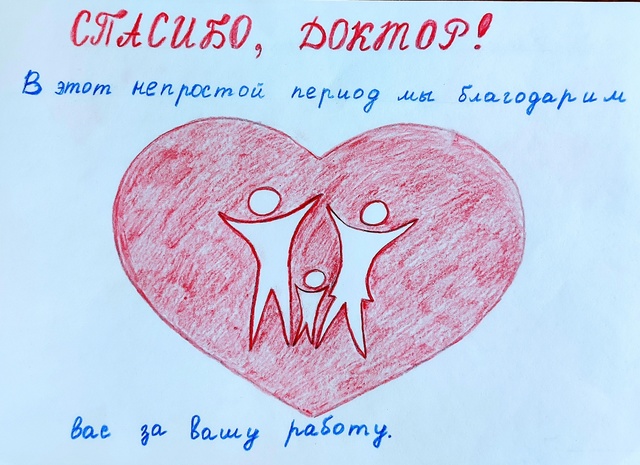 СПАСИБО, ДОКТОР!
В этот непростой период мы благодарим
вас за вашу работу.